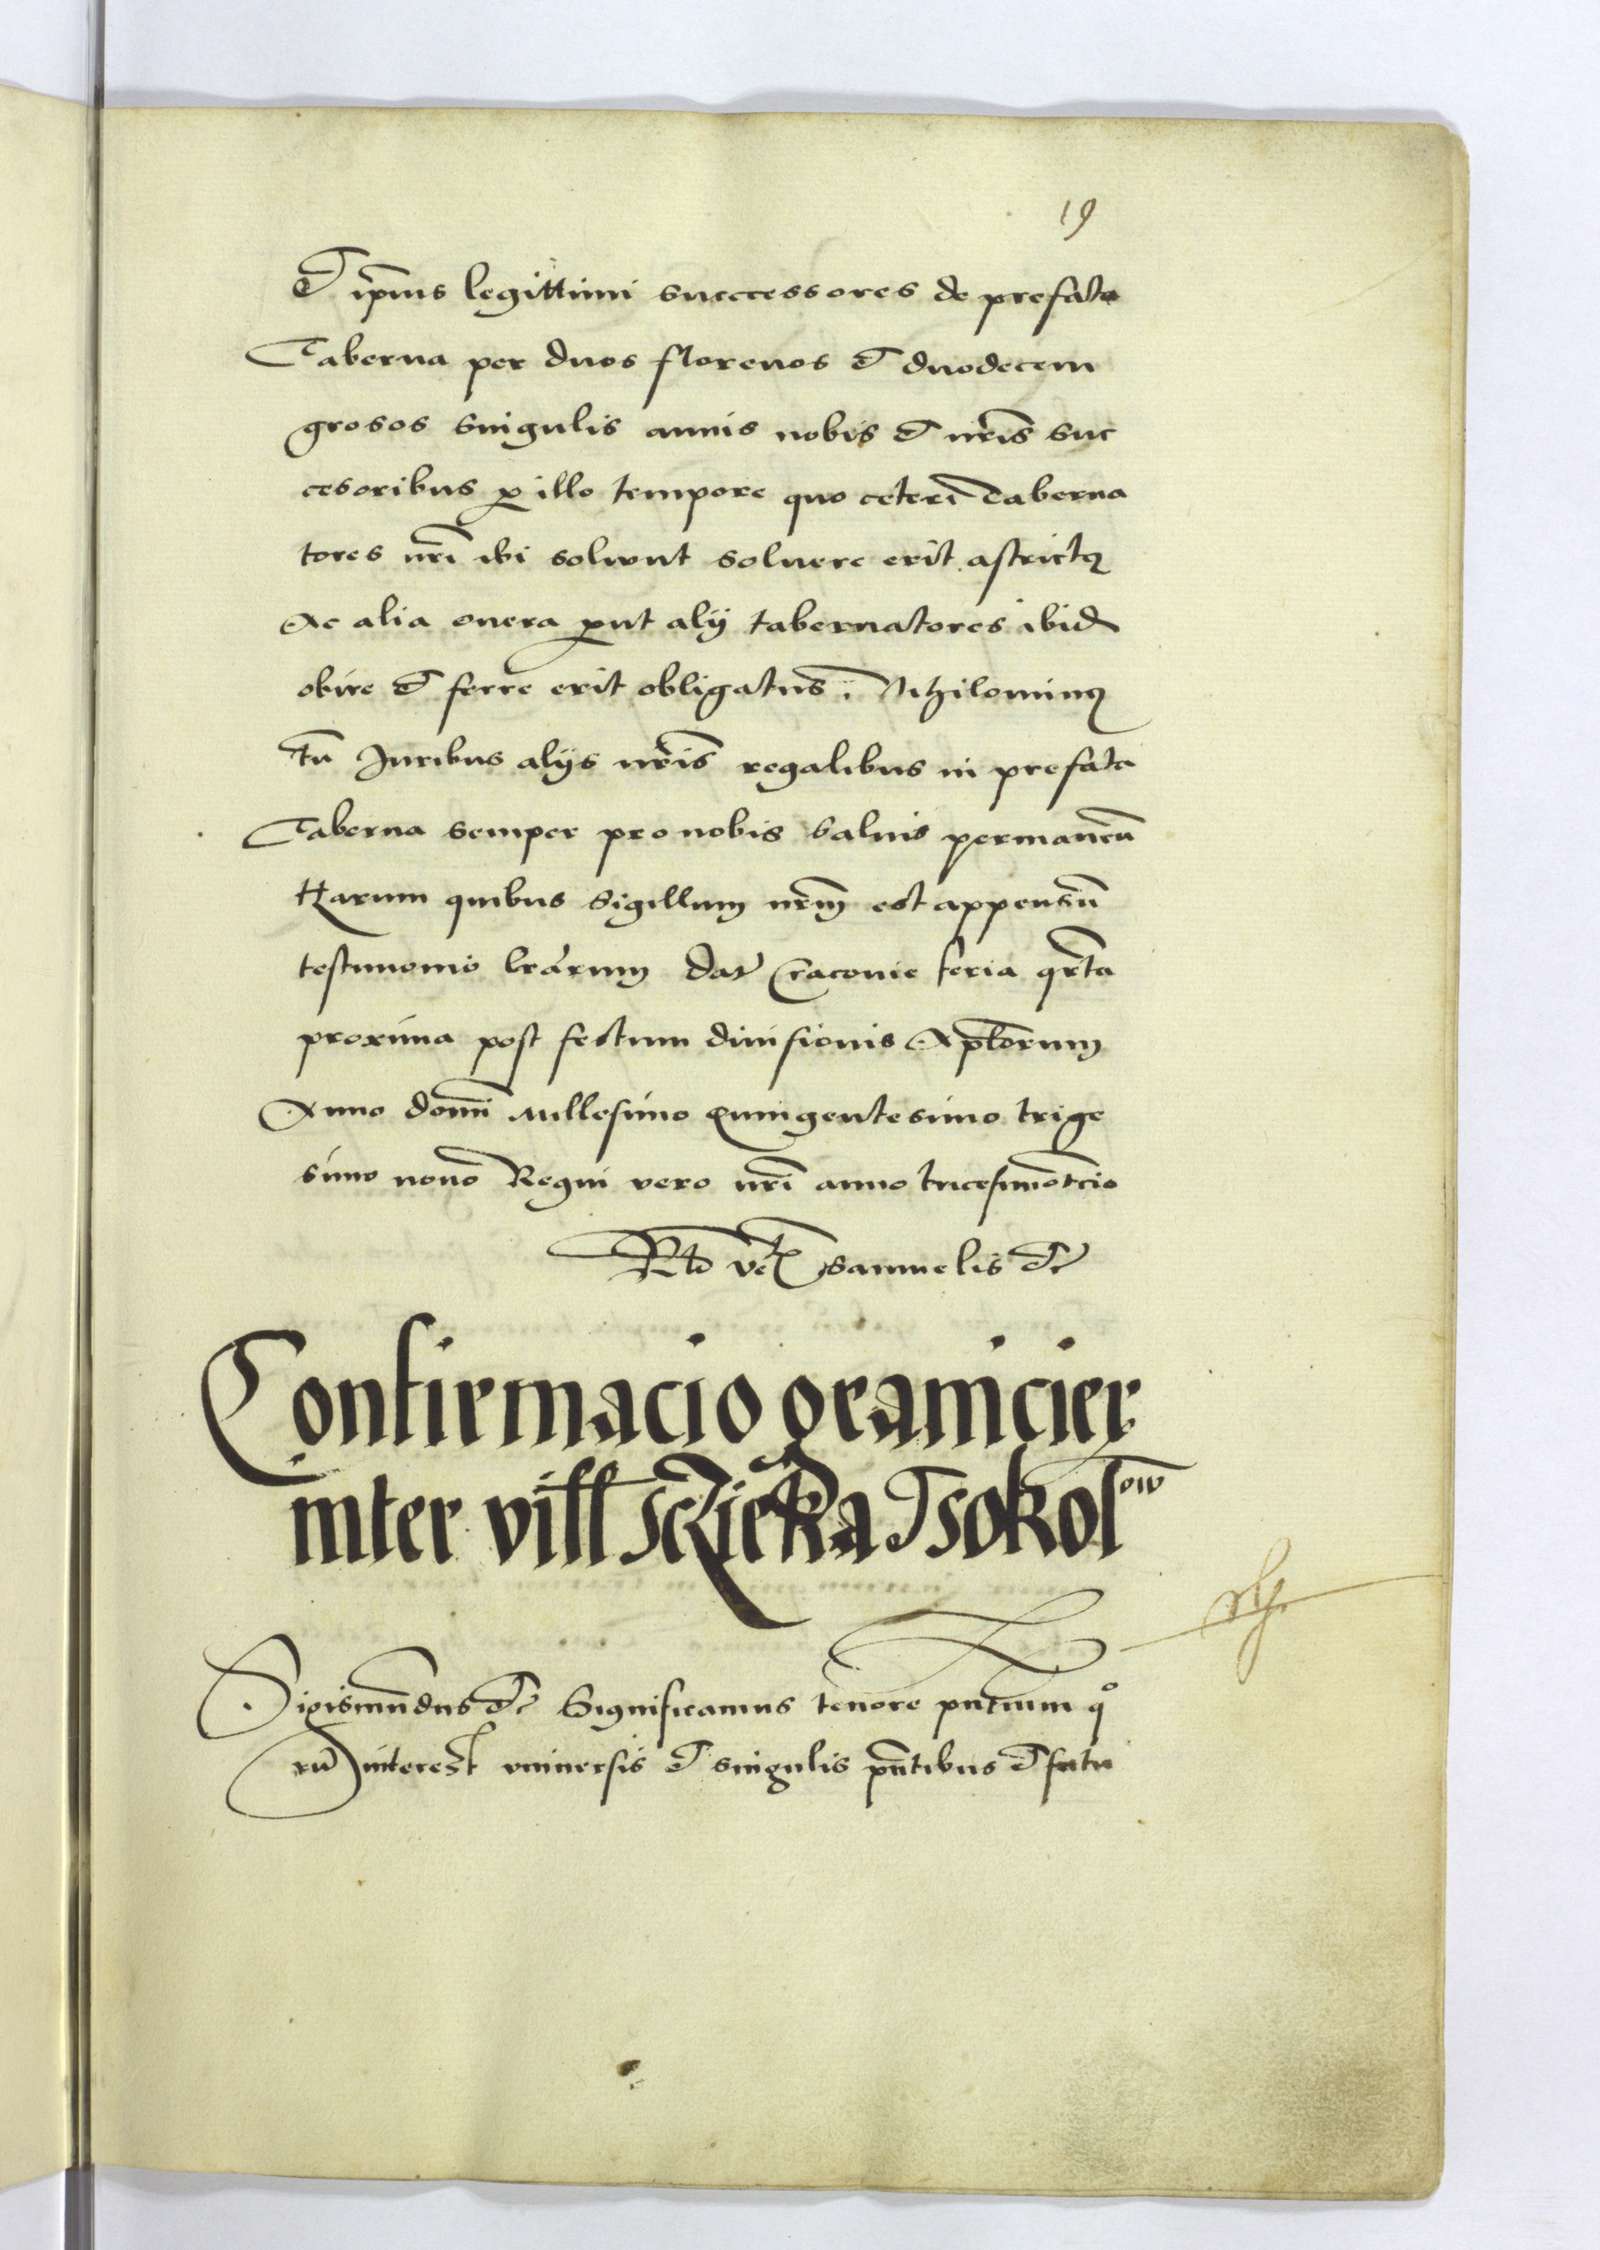 19
Et ip̄ius legittimi succcessores de prefata
Taberna per duos florenos et duodecem
grosos singulis annis nobis et nr̄is suc
cesoribus ꝓ illo tempore quo ceteri Taberna
tores nr̄i ibi solvunt soluere erit astrictꝰ
Ac alia onera ꝓut alij tabernatores ibid
obire et ferre erit obligatus. Nihilominꝰ
tn̄ Juribus alijs nr̄is regalibus in prefata
Taberna semper pro nobis saluis permanen̄
Harum quibus Sigillum nr̄m est appensū
testimonio lr̄arum Dat Cracovie feria qr̄ta
proxima post festum diuisionis Apl̄orum
Anno domī Millesimo quingentesimo trige
simo nono Regni vero nr̄i anno tricesimot̄cio
Rtō vt Samuelis etc
Confirmacio granicier
inter vill Sczieka et Sokolow
Sigismūdus etc Significamus tenore pn̄tium qͦ
rū interest vniuersis et singulis pn̄tibus et futu